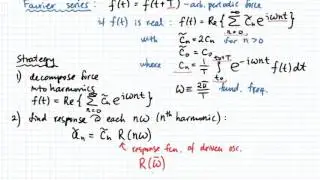 Fourier series: f(t) = f(t+T) - arb. periodic force
if f(t) is real: f(t) = Re{ ∑ c̃n e^iωnt }
n=0
with c̃n = 2Cn for n>0
c̃0 = C0
where Cn = 1/T ∫ e^-iωnt f(t) dt
Strategy
1) decompose force
into harmonics
f(t) = Re{ ∑ c̃n e^iωnt }
n=0
ω ≡ 2π/T fund. freq.
2) find response @ each nω (nth harmonic):
= c̃n R(nω)
response fcn. of driven osc.
R(ω̃)